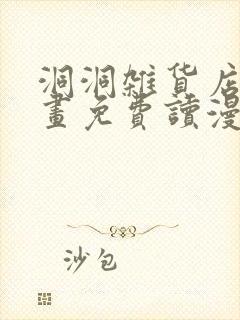 洞洞雜貨店
畫免費讀漫
沙包